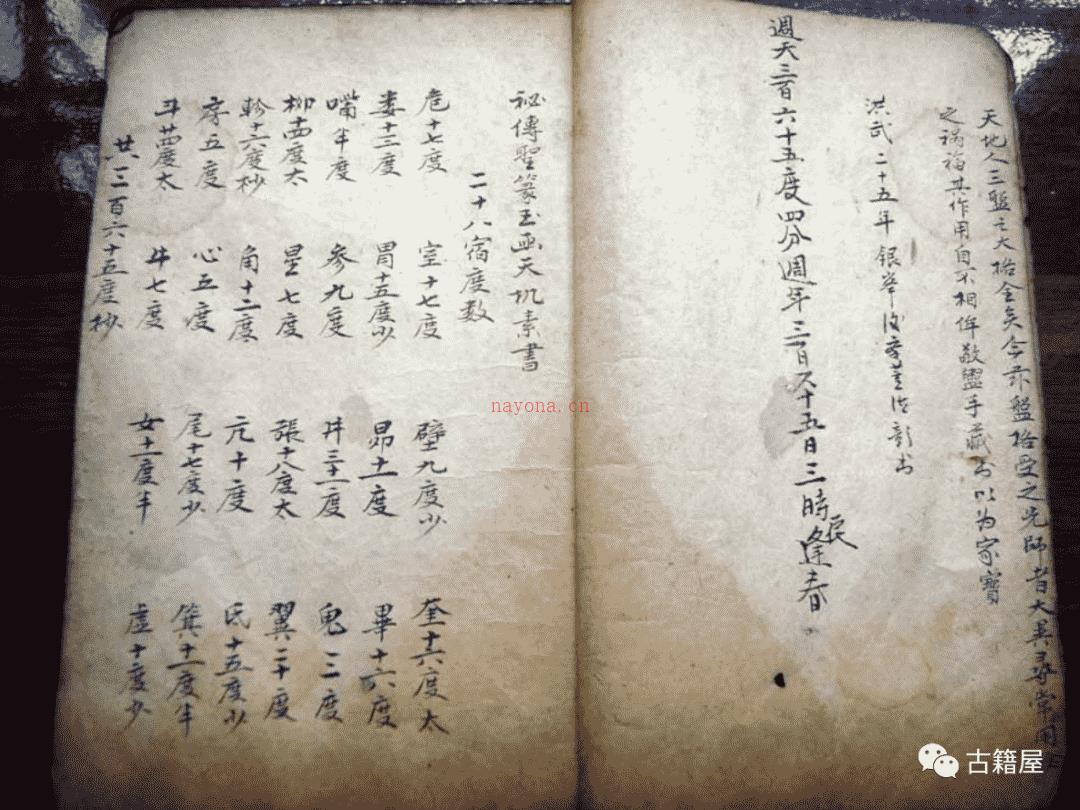 天地人三盤之大格全矣今茲盤格受之先師者大異尋常用
之禍福其作用自不相侔敬盥手藏為以為家寶
洪武二十五年銀峯後學
週天三百六十五度四分週年三百六十五日三時辰逢春
秘傳聖篆玉函天机素書
二十八宿度數
危十七度 室十七度 壁九度少 奎十六度太
婁十三度 胃十五度少 昴十一度 畢十六度
嘴半度 參九度 井三十一度 鬼三度
柳十四度太 星七度 張十八度太 翼二十度
軫十六度杪 角十二度 亢十度 氐十五度少
房五度 心五度 尾十七度少 箕十一度半
斗廿四度太 牛七度 女十一度半 虛十度少
共三百六十五度杪
nayona.cn
古籍屋